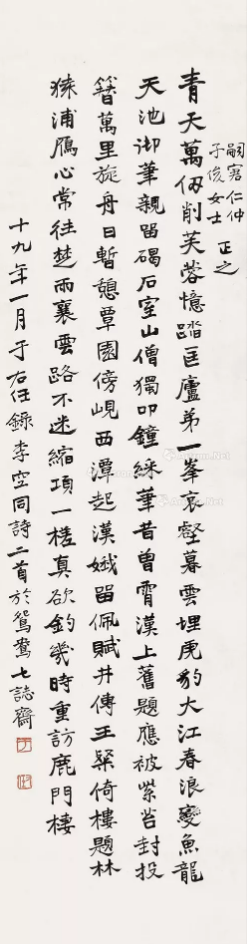 嗣宥仁仲
子俊女士 正之
青天萬仞削芙蓉憶踏匡廬弟一峯哀壑暮雲埋虎豹大江春浪變魚龍
天池御筆親留碣石室山僧獨叩鐘綵筆昔曾霄漢上舊題應被紫苔封投
簪萬里旋舟日暫憩覃園傍峴西潭起漢娥留佩賦井傳王粲倚樓題林
猿浦鴈心常往楚雨襄雲路不迷縮項一槎真欲釣幾時重訪鹿門棲
十九年一月于右任錄李空同詩二首於鴛鴦七誌齋